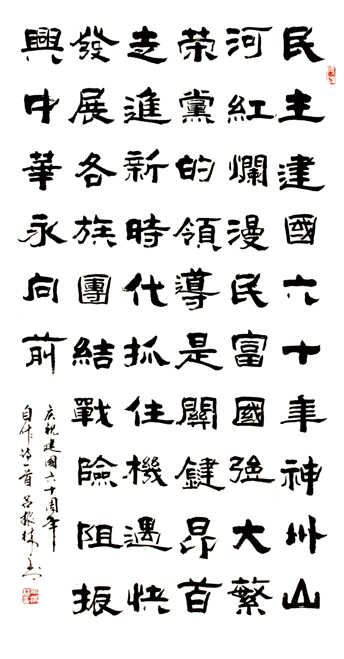 民主建國六十年神州山
河紅爛漫民富國强大繁
榮黨的領導是關鍵昂首
走進新時代抓住機遇快
發展各族團結戰險阻振
興中華永向前
庆祝建國六十周年
自作诗一首 吕振林